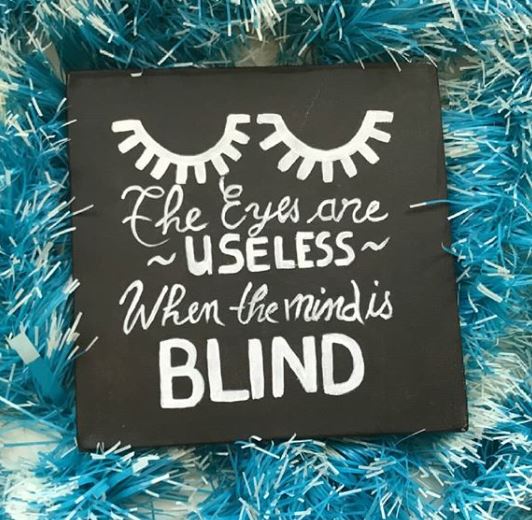 The Eyes are
~USELESS~
When the mind is
BLIND